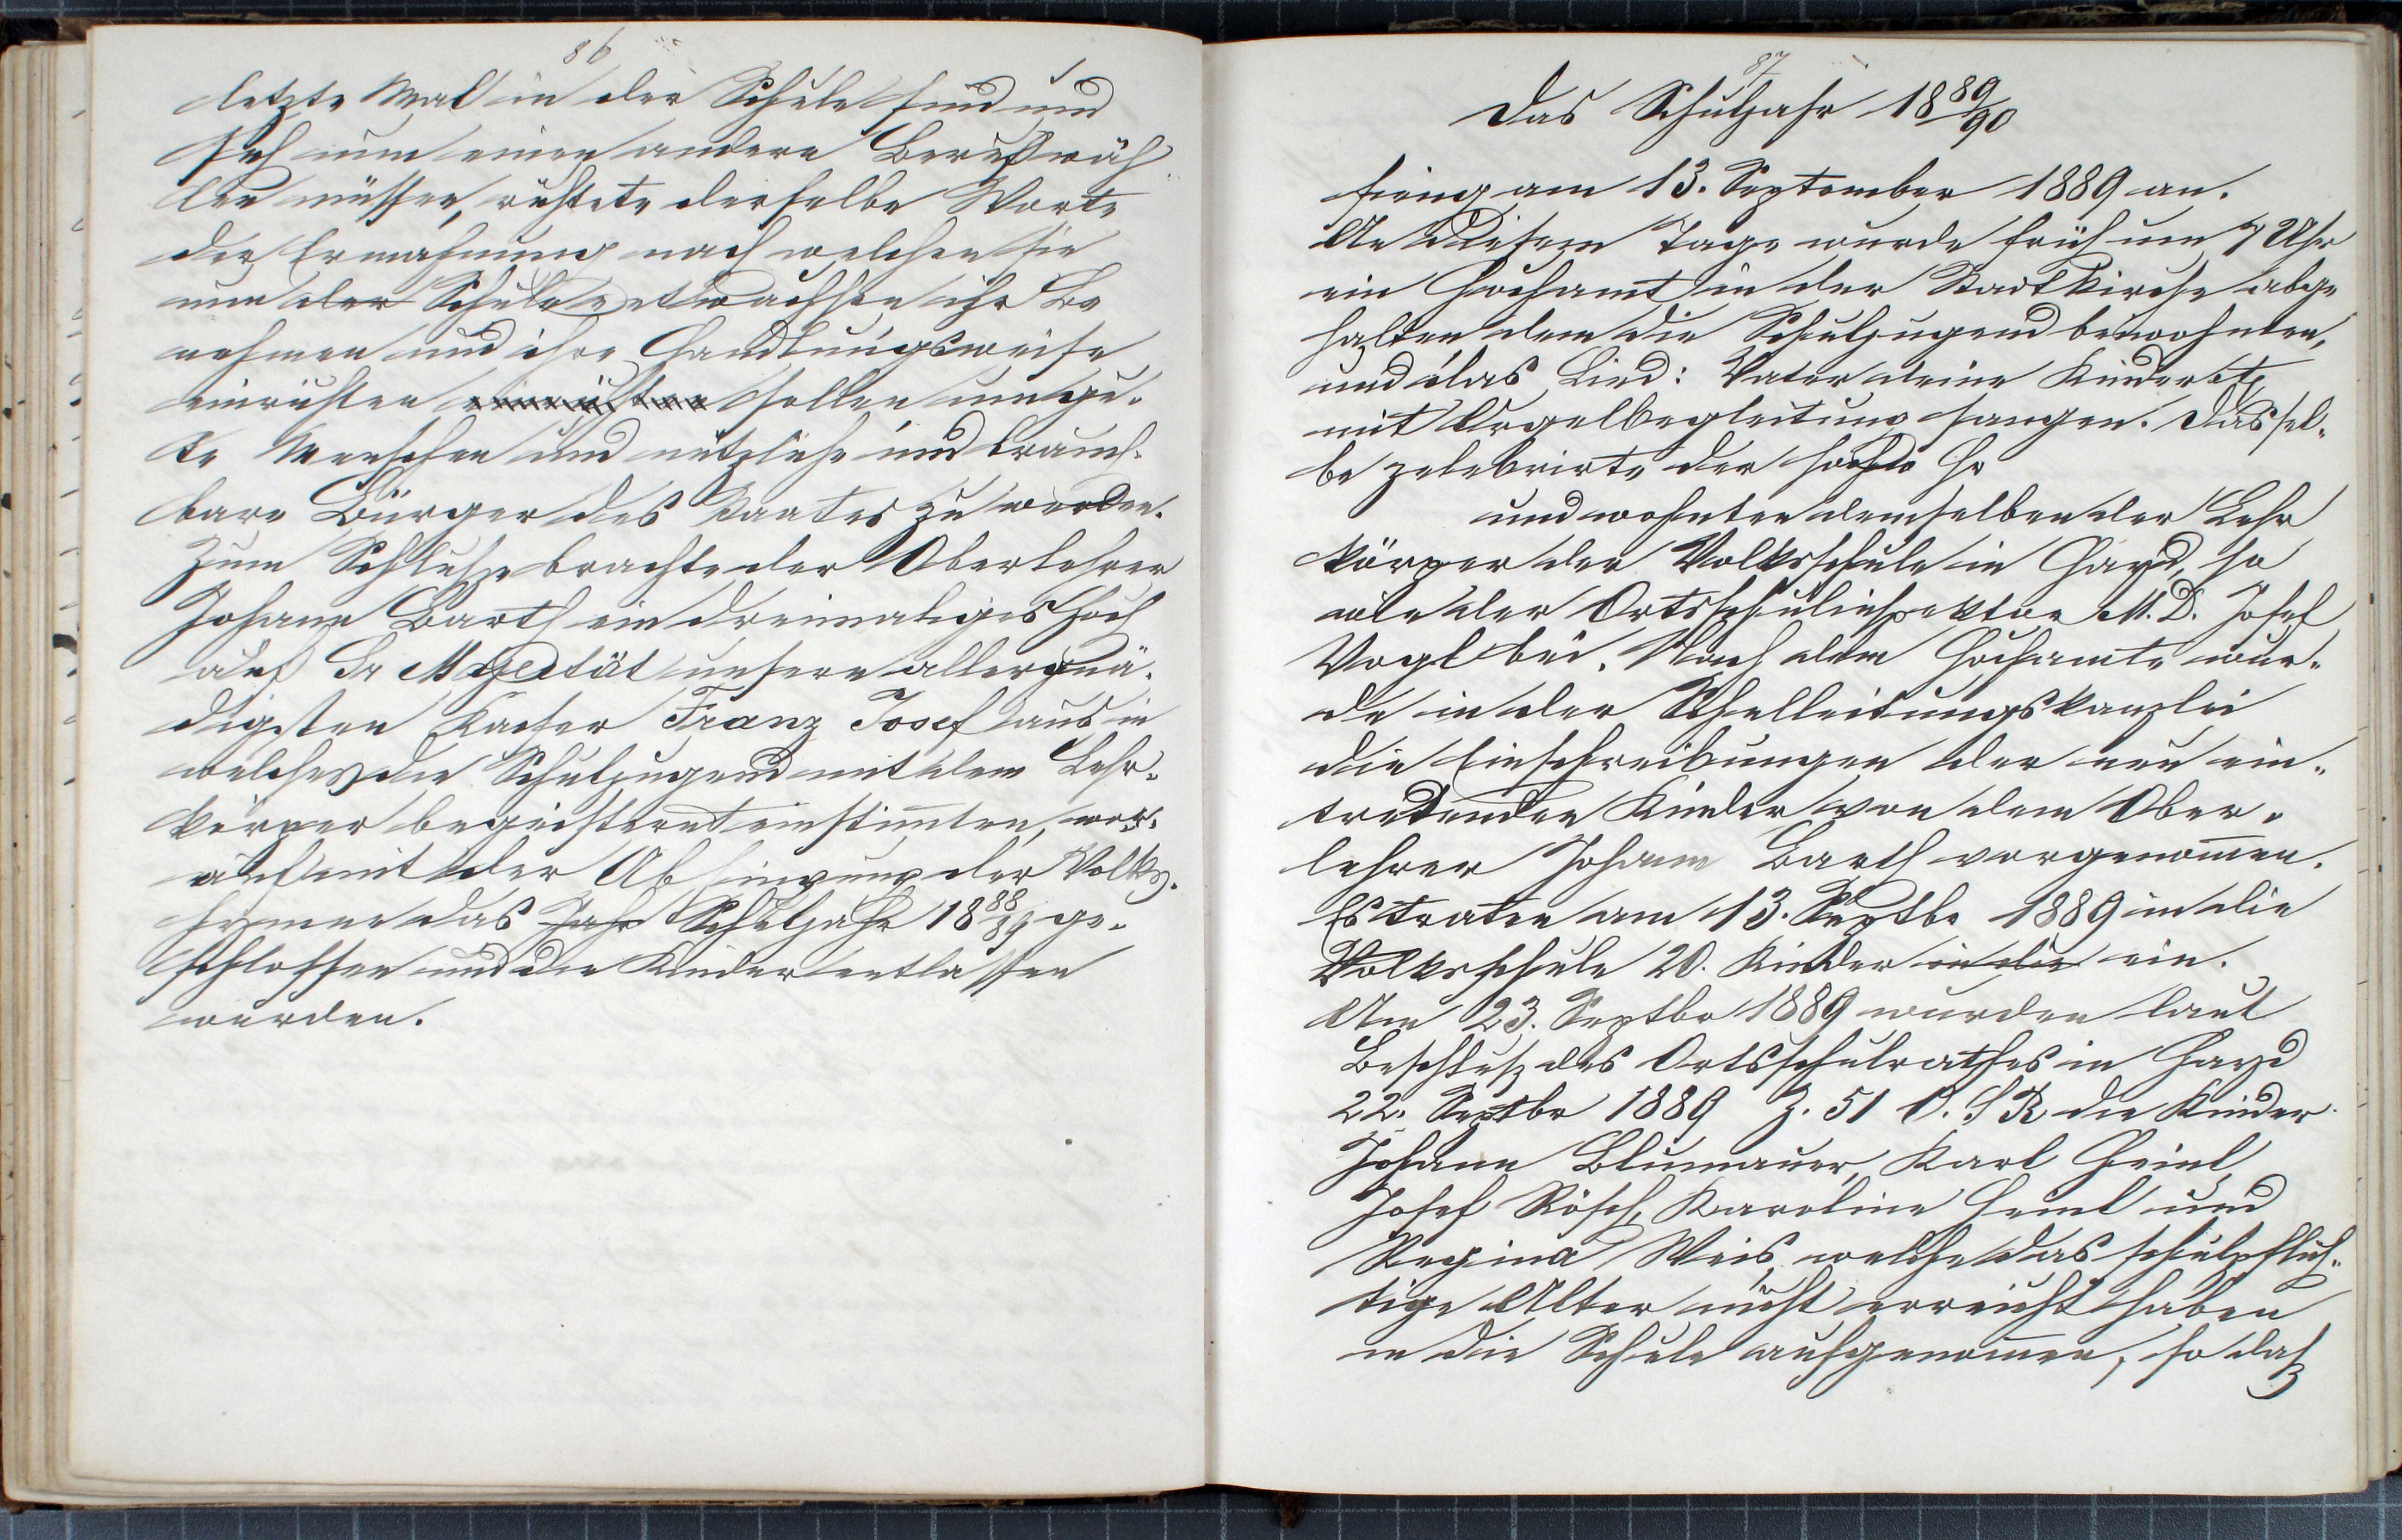 86
letzte Mal in der Schule sind und
sich nun einen andern Beruf wäh
len müssen, richtete derselbe Worte
der Ermahnung nach welchen sie
nun der Schule entwachsen ihr Be
nehmen und ihre Handlungsweise
einrichten einrichten sollen um gu-
te Menschen und nützliche und brauch-
bare Bürger des Staates zu werden.
Zum Schlusse brachte der Oberlehrer
Johann Barth ein dreimaliges Hoch
auf Sr Majestät unsern allergnä-
digsten Kaiser Franz Josef aus in
welches die Schuljugend mit dem Lehr-
körper begeisternt einstimten, wor-
auf mit der Absingung der Volks-
hymne das Jahr Schuljahr 1888/89 ge-
schlossen und die Kinder entlassen
wurden.
87
Das Schuljahr 1889/90
fieng am 13. September 1889 an.
An diesem Tage wurde früh um 7 Uhr
ein Hochamt in der Stadtkirche abge
halten dem die Schuljugend beiwohnten,
und das Lied: Vater deine Kinder etc
mit Orgelbegleitung sangen. Dassel-
be zelebrirte der Hr
und wohnten demselben der Lehr
körper der Volksschule in Hayd, so
wie der Ortsschulinspektor M. D. Josef
Vogl bei. Nach dem Hochamte wur-
de in der Schulleitungskanzlei
die Einschreibungen der neu ein-
tretenden Kinder von dem Ober-
lehrer Johann Barth vorgenomen.
Es traten am 13. Septbr 1889 in die
Volksschule 20. Kinder in die ein.
Am 23. Septbr 1889 wurden laut
Beschluß des Ortsschulrathes in Hayd
22. Septbr 1889 Z. 51 O. S R die Kinder
Johann Blumauer, Karl Heinl,
Josef Rösch, Karoline Heinl und
Regina Weis, welche das schulpflich-
tige Alter nicht erreicht haben
in die Schule aufgenomen, so daß